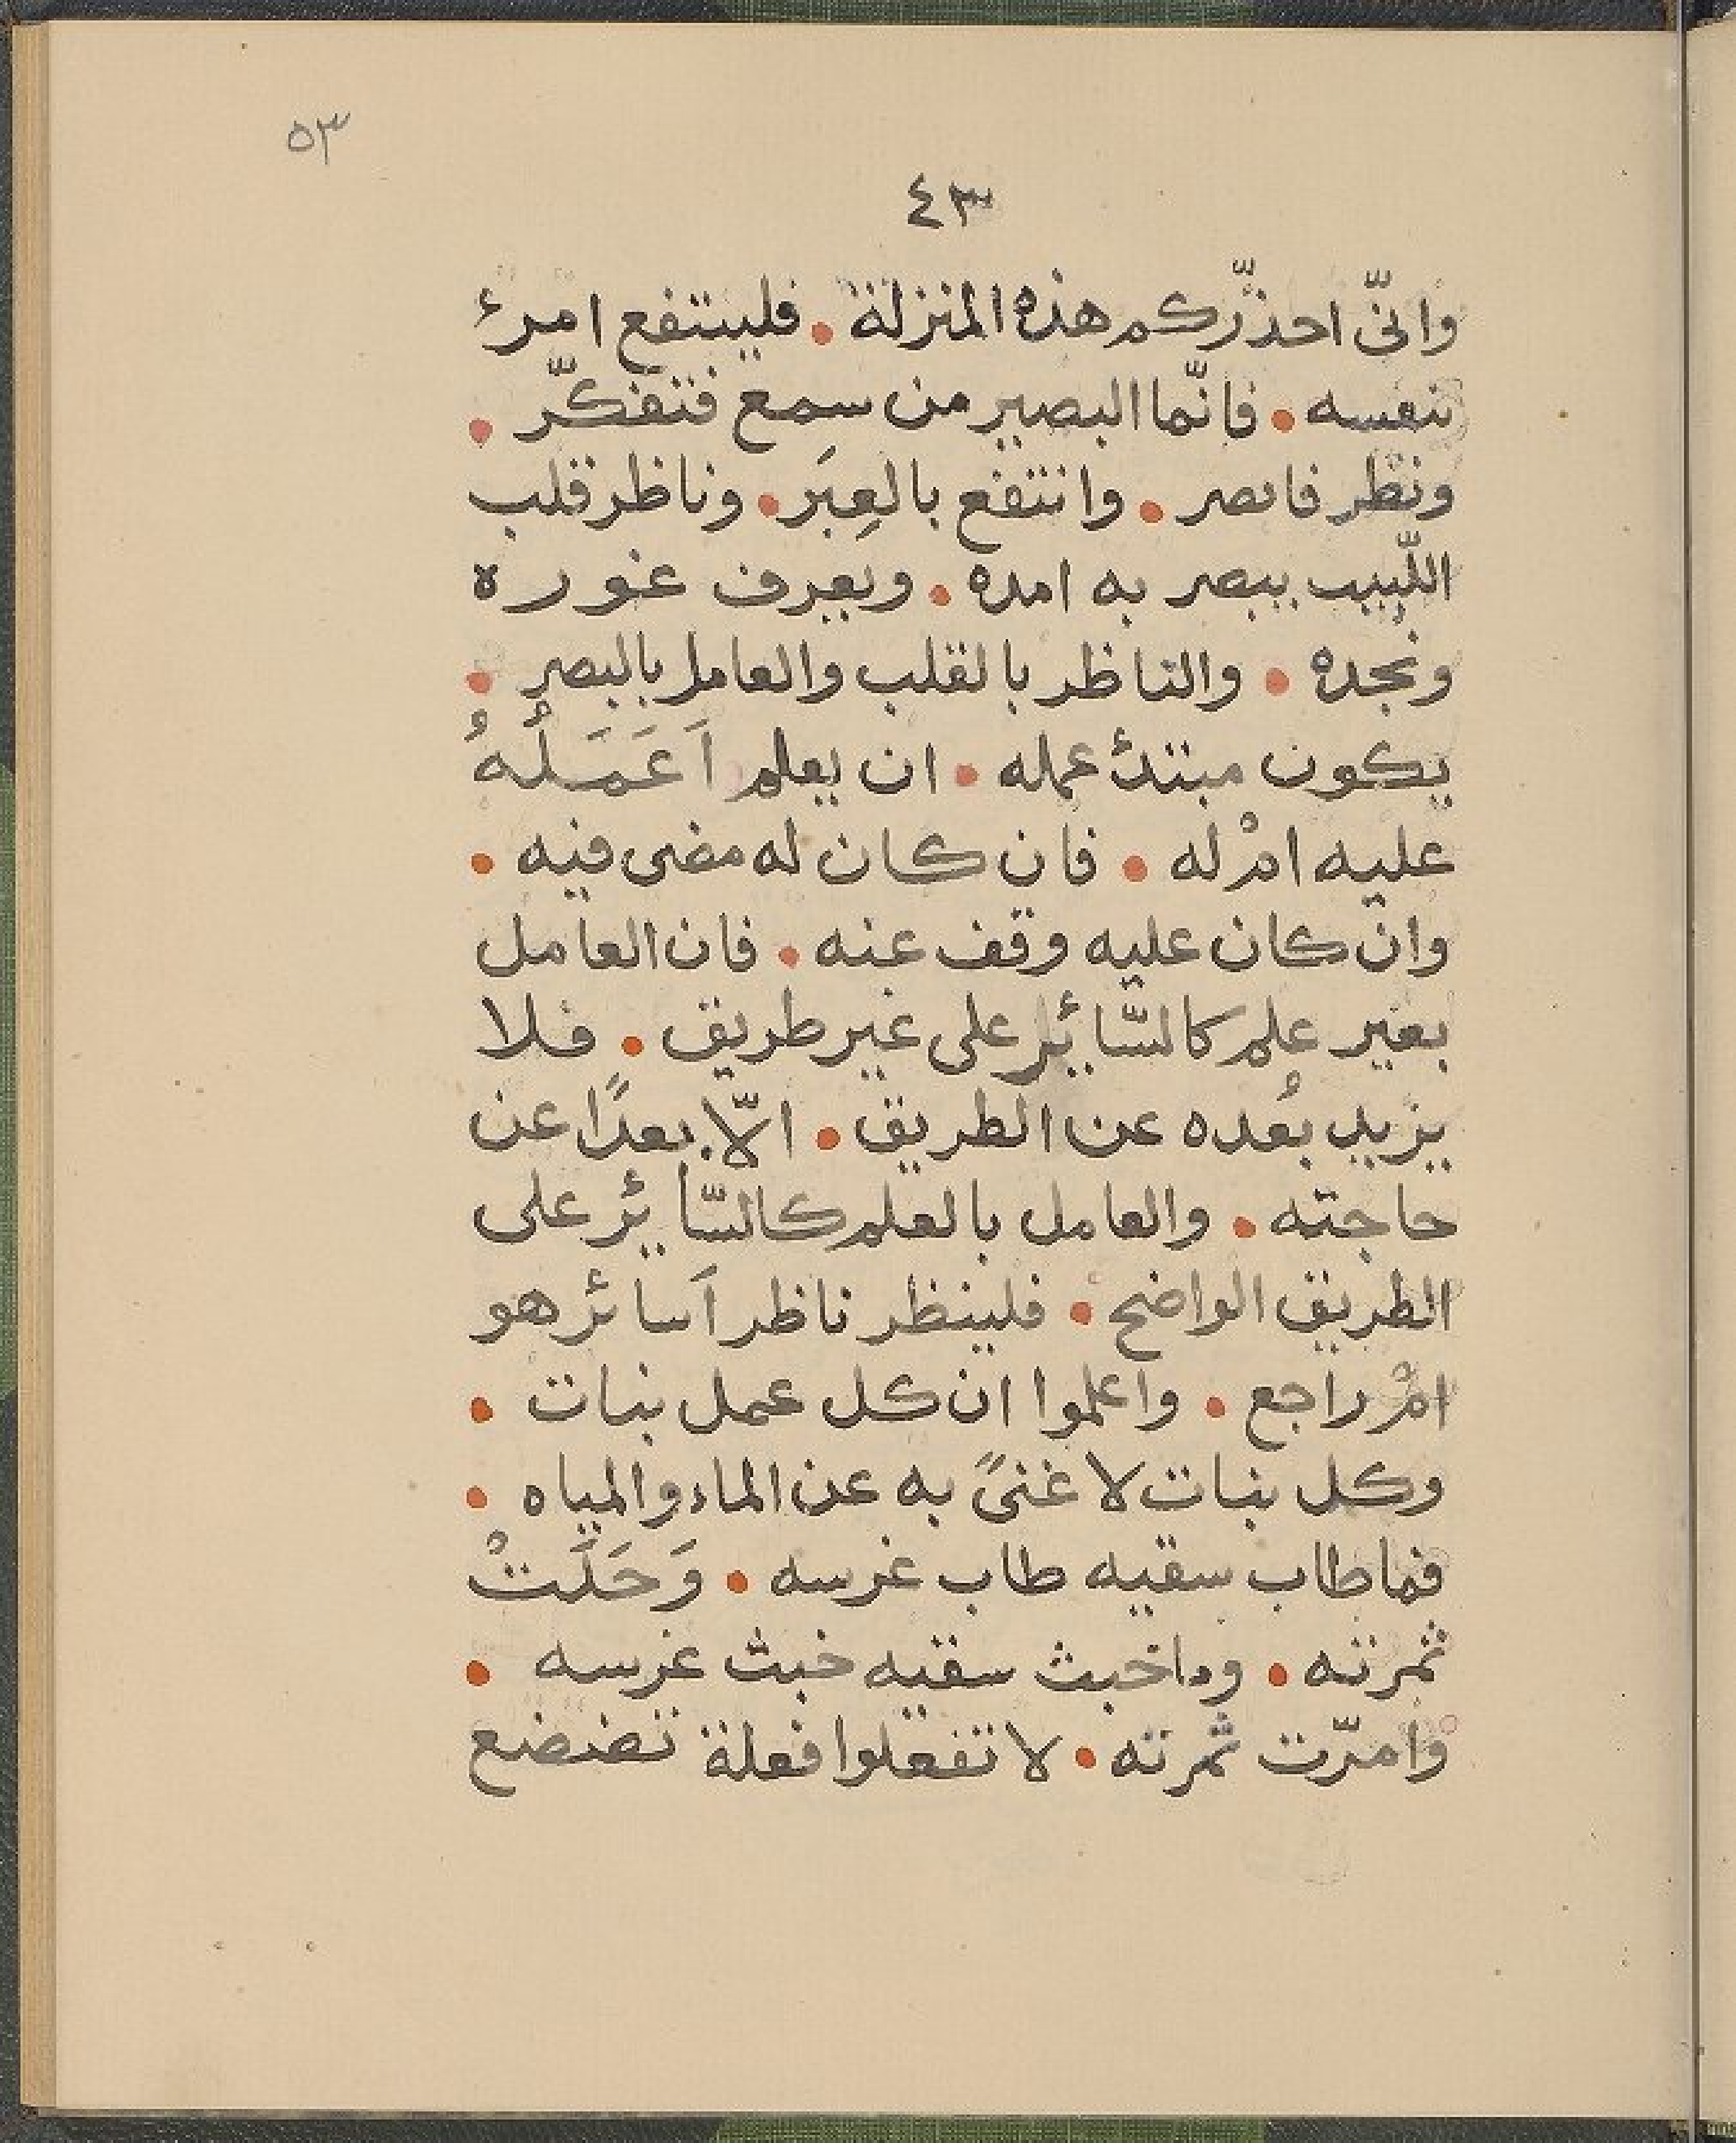 ٥٣
٤٣
وانّى احذّركم هذه المنزلة • فلينتفع امرئ
بنفسه • فانّما البصير من سمع فتفكّر •
ونظر فابصر • وانتفع بالعِبَر • وناظر قلب
اللّبيب يبصر به امده • ويعرف غوره
ونجده • والناظر بالقلب والعامل بالبصر •
يكون مبتدئ عمله • ان يعلم اَعَمَلُهُ
عليه امْ له • فان كان له مضى فيه •
وان كان عليه وقف عنه • فان العامل
بغير علم كالسّائر على غير طريق • فلا
يزيد بُعده عن الطريق • الّا بعدًا عن
حاجته • والعامل بالعلم كالسّائر على
الطريق الواضح • فلينظر ناظر اَسائر هو
امْ راجع • واعلموا ان كل عمل نبات •
وكل نبات لا غنىً به عن الماء والمياه •
فما طاب سقيه طاب غرسه • وَحَلَتْ
ثمرته • وما خبث سقيه خبث غرسه •
وامرّت ثمرته • لا تفعلوا فعلة تضضع